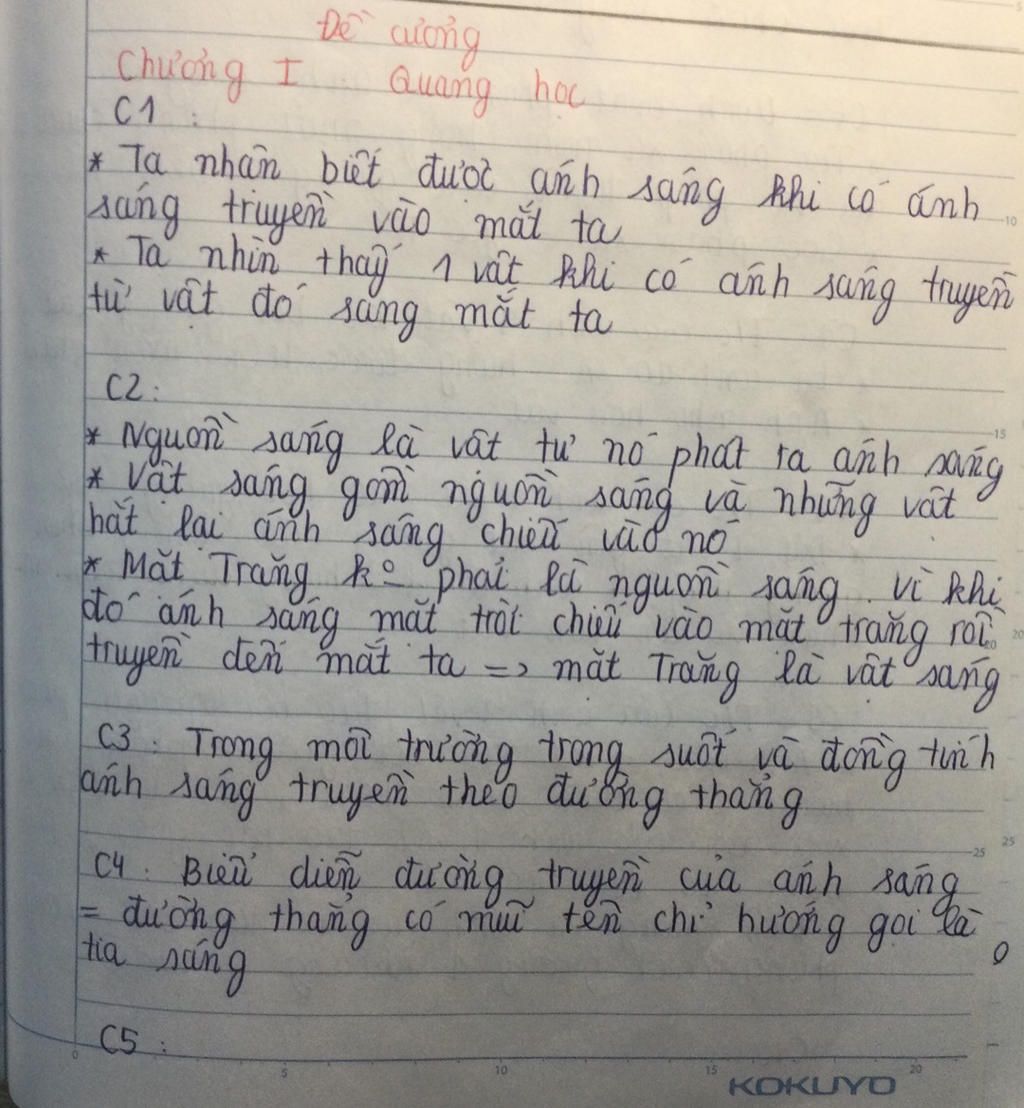 Đề cương
Chương I Quang học
C1 :
* Ta nhận biết được ánh sáng khi có ánh
sáng truyền vào mắt ta
* Ta nhìn thấy 1 vật khi có ánh sáng truyền
từ vật đó sang mắt ta
C2 :
* Nguồn sáng là vật tự nó phát ra ánh sáng
* Vật sáng gồm nguồn sáng và những vật
hắt lại ánh sáng chiếu vào nó
* Mặt Trăng kº phải là nguồn sáng. Vì khi
đó ánh sáng mặt trời chiếu vào mặt trăng rồi
truyền đến mắt ta => mặt Trăng là vật sáng
C3 : Trong môi trường trong suốt và đồng tính
ánh sáng truyền theo đường thẳng
C4 . Biểu diễn đường truyền của ánh sáng
= đường thẳng có mũi tên chỉ hướng gọi là
tia sáng
C5 :
0 5 10 15 20
KOKUYO